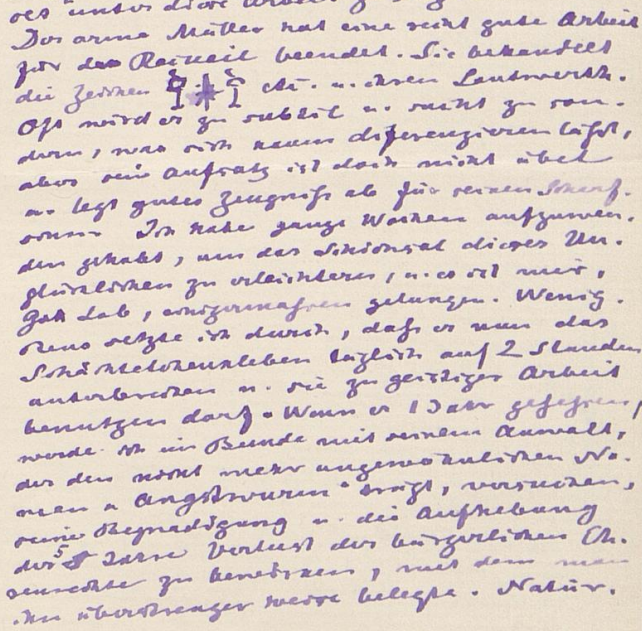 Der arme Müller hat eine recht gute Arbeit
für das Recueil beendet. Sie behandelt
die Zeichen etc. u. ihren Lautwerth.
Oft wird er zu subtil u. sucht zu son-
dern, was sich kaum differenzieren läßt,
aber sein Aufsatz ist doch nicht übel
u. legt gutes Zeugniß ab für seinen Scharf-
sinn. Ich habe ganze Wochen aufzuwen-
den gehabt, um das Schicksal dieses Un-
glücklichen zu erleichtern, u. es ist mir,
Gott Lob, einigermaßen gelungen. Wenig-
stens setzte ich durch, daß er nun das
täglich auf 2 Stunden
unterbrechen u. sie zu geistiger Arbeit
benutzen darf. Wenn er 1 Jahr gesessen,
werde ich im Bunde mit seinem Anwalt,
der den nicht mehr ungewöhnlichen Na-
men "Angstwurm" trägt, versuchen,
seine Begnadigung u. die Aufhebung
der 5 Jahre Verlust der bürgerlichen Eh-
renrechte zu bewirken, mit dem man
ihn überstrenger weise belegte. Natür-